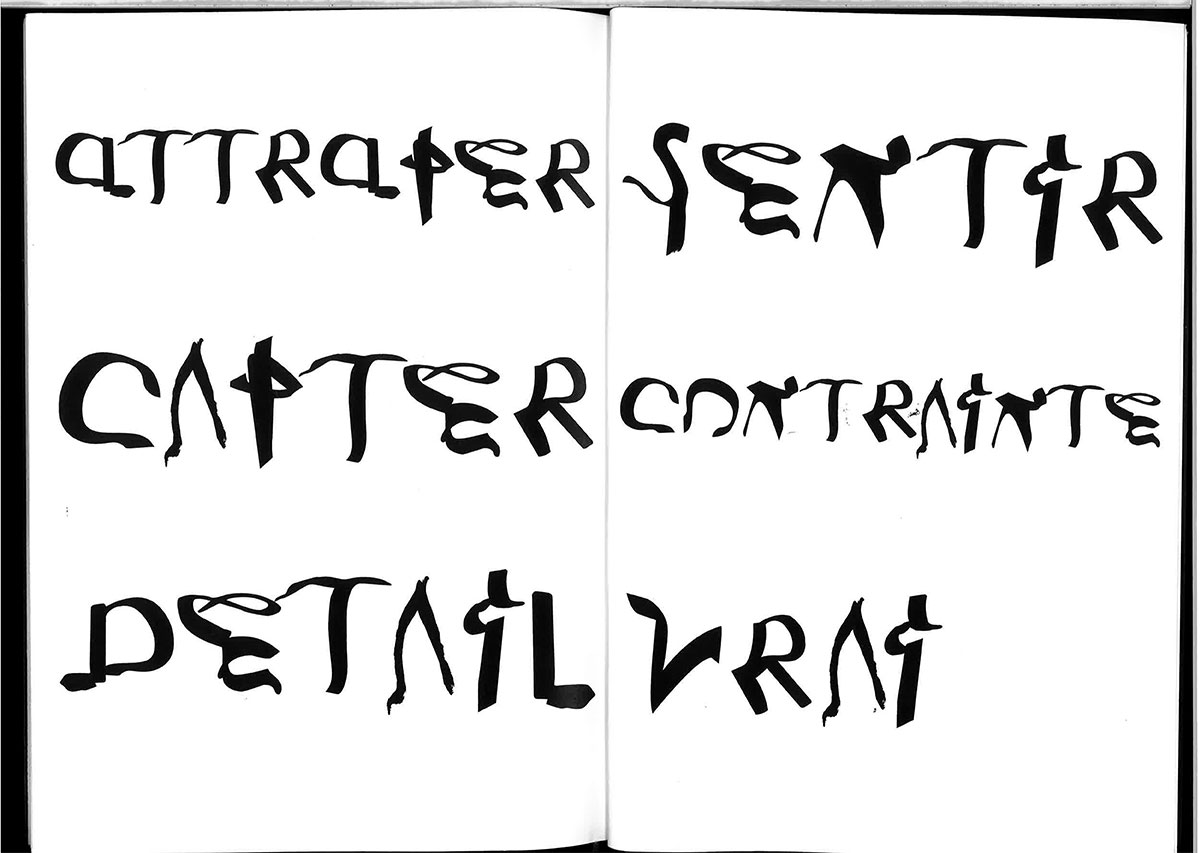 ATTRAPER
CAPTER
DETAIL
SENTIR
CONTRAINTE
VRAI